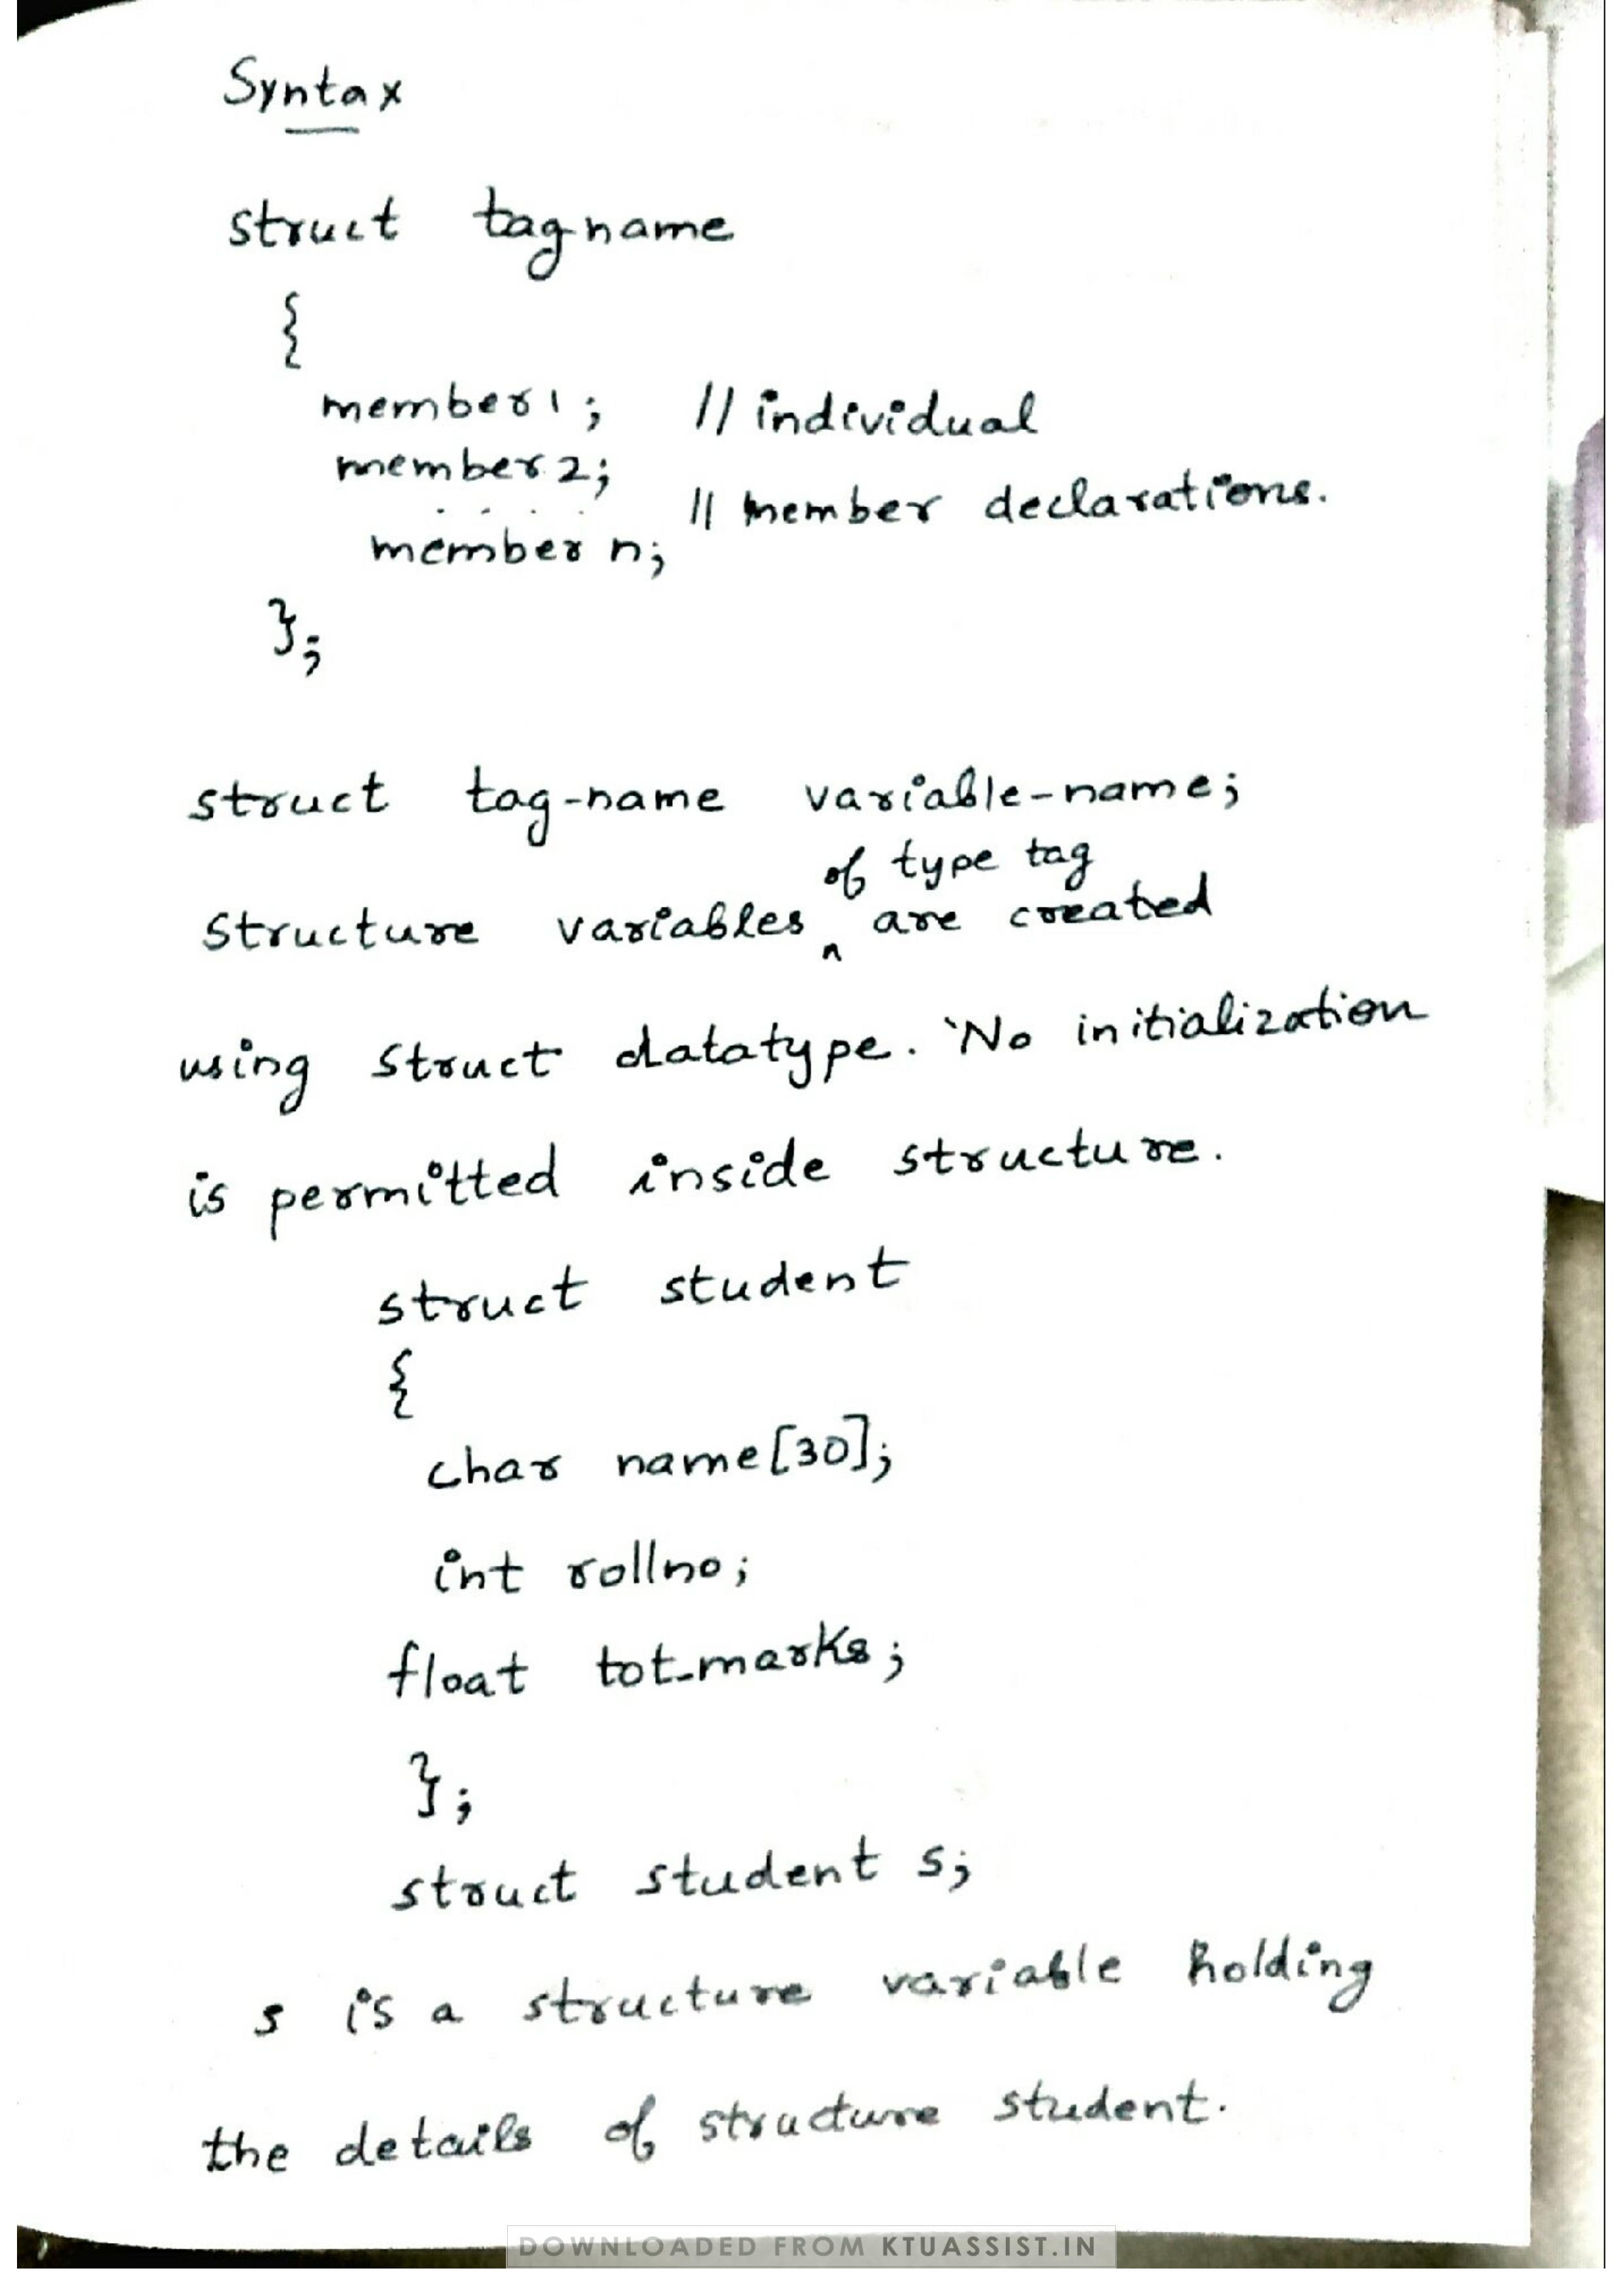 Syntax
struct tagname
{
member1; // individual
member2;
. . . . // member declarations.
member n;
};
struct tag-name variable-name;
of type tag
Structure variables ^ are created
using struct datatype. No initialization
is permitted inside structure.
struct student
{
char name[30];
int rollno;
float tot_marks;
};
struct student s;
s is a structure variable holding
the details of structure student.
DOWNLOADED FROM KTUASSIST.IN